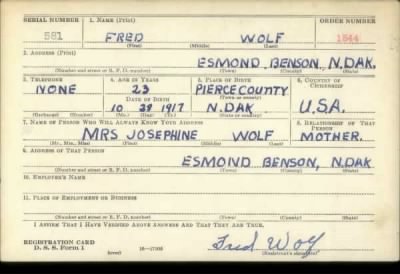 SERIAL NUMBER 1. NAME (Print) ORDER NUMBER
581 FRED WOLF 1544
(First) (Middle) (Last)
2. ADDRESS (Print)
ESMOND BENSON, N.DAK.
(Number and street or R. F. D. number) (Town) (County) (State)
3. TELEPHONE 4. AGE IN YEARS 5. PLACE OF BIRTH 6. COUNTRY OF CITIZENSHIP
NONE 23 PIERCE COUNTY
DATE OF BIRTH (Town or county)
10 29 1917 N.DAK. U.S.A.
(Exchange) (Number) (Mo.) (Day) (Yr.) (State or country)
7. NAME OF PERSON WHO WILL ALWAYS KNOW YOUR ADDRESS 8. RELATIONSHIP OF THAT PERSON
MRS JOSEPHINE WOLF MOTHER.
(Mr., Mrs., Miss) (First) (Middle) (Last)
9. ADDRESS OF THAT PERSON
ESMOND BENSON, N.DAK
(Number and street or R. F. D. number) (Town) (County) (State)
10. EMPLOYER'S NAME
11. PLACE OF EMPLOYMENT OR BUSINESS
(Number and street or R. F. D. number) (Town) (County) (State)
I AFFIRM THAT I HAVE VERIFIED ABOVE ANSWERS AND THAT THEY ARE TRUE.
REGISTRATION CARD
D. S. S. Form 1 (over) Fred Wolf
(Registrant's signature)